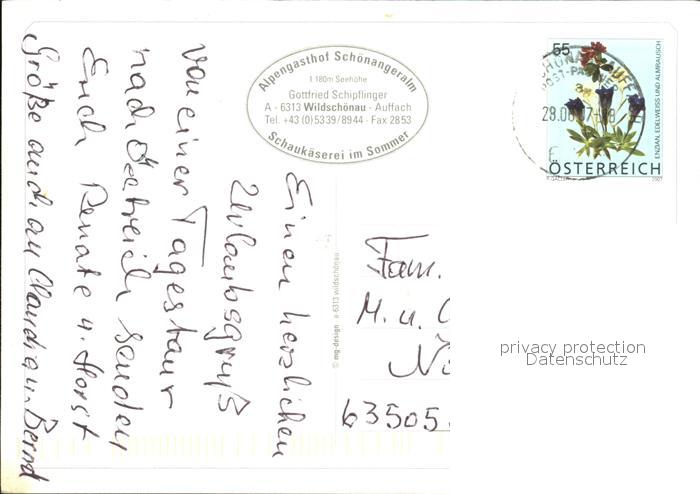 Alpengasthof Schönangeralm
1 180m Seehöhe
Gottfried Schipflinger
A - 6313 Wildschönau - Auffach
Tel. +43 (0) 5339 / 8944 - Fax 2853
Schaukäserei im Sommer
Einen herzlichen
Urlaubsgruß
von einer Tagestour
nach Östreich senden
Euch Renate u. Horst
Grüße auch an Claudia u. Bernd
© mg-design a-6313 wildschönau
55
ENZIAN, EDELWEISS UND ALMRAUSCH
ÖSTERREICH
2007
Fam.
M. u.
63505
privacy protection
Datenschutz